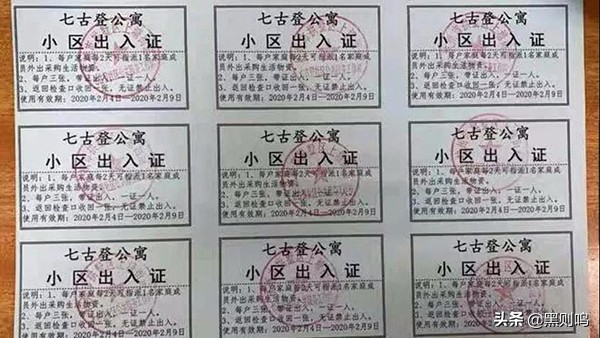 七古登公寓
小区出入证
说明：1、每户家庭每2天可指派1名家庭成
员外出采购生活物资。
2、每户三张，带证出入，一证一人。
3、返回检查口收回一张，无证禁止出入。
使用有效期：2020年2月4日—2020年2月9日
七古登公寓
小区出入证
说明：1、每户家庭每2天可指派1名家庭成
员外出采购生活物资。
2、每户三张，带证出入，一证一人。
3、返回检查口收回一张，无证禁止出入。
使用有效期：2020年2月4日—2020年2月9日
七古登公寓
小区出入证
说明：1、每户家庭每2天可指派1名家庭成
员外出采购生活物资。
2、每户三张，带证出入，一证一人。
3、返回检查口收回一张，无证禁止出入。
使用有效期：2020年2月4日—2020年2月9日
七古登公寓
小区出入证
说明：1、每户家庭每2天可指派1名家庭成
员外出采购生活物资。
2、每户三张，带证出入，一证一人。
3、返回检查口收回一张，无证禁止出入。
使用有效期：2020年2月4日—2020年2月9日
七古登公寓
小区出入证
说明：1、每户家庭每2天可指派1名家庭成
员外出采购生活物资。
2、每户三张，带证出入，一证一人。
3、返回检查口收回一张，无证禁止出入。
使用有效期：2020年2月4日—2020年2月9日
七古登公寓
小区出入证
说明：1、每户家庭每2天可指派1名家庭成
员外出采购生活物资。
2、每户三张，带证出入，一证一人。
3、返回检查口收回一张，无证禁止出入。
使用有效期：2020年2月4日—2020年2月9日
七古登公寓
小区出入证
说明：1、每户家庭每2天可指派1名家庭成
员外出采购生活物资。
2、每户三张，带证出入，一证一人。
3、返回检查口收回一张，无证禁止出入。
使用有效期：2020年2月4日—2020年2月9日
七古登公寓
小区出入证
说明：1、每户家庭每2天可指派1名家庭成
员外出采购生活物资。
2、每户三张，带证出入，一证一人。
3、返回检查口收回一张，无证禁止出入。
使用有效期：2020年2月4日—2020年2月9日
七古登公寓
小区出入证
说明：1、每户家庭每2天可指派1名家庭成
员外出采购生活物资。
2、每户三张，带证出入，一证一人。
3、返回检查口收回一张，无证禁止出入。
头条 @黑则呜